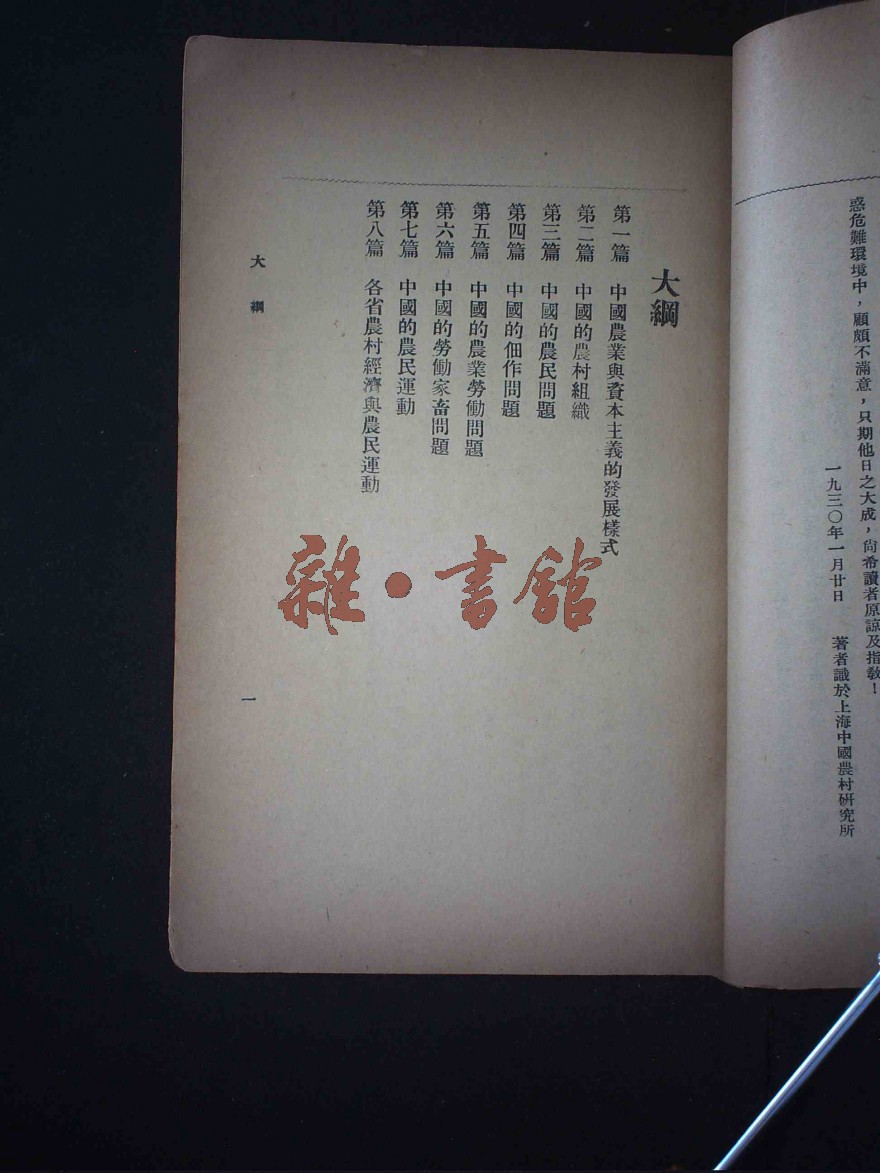 惑危難環境中，顧頗不滿意，只期他日之大成，尙希讀者原諒及指教！
一九三〇年一月廿日　著者識於上海中國農村硏究所
大綱
第一篇　中國農業與資本主義的發展樣式
第二篇　中國的農村組織
第三篇　中國的農民問題
第四篇　中國的佃作問題
第五篇　中國的農業勞働問題
第六篇　中國的勞働家畜問題
第七篇　中國的農民運動
第八篇　各省農村經濟與農民運動
大綱
一
雜·書館